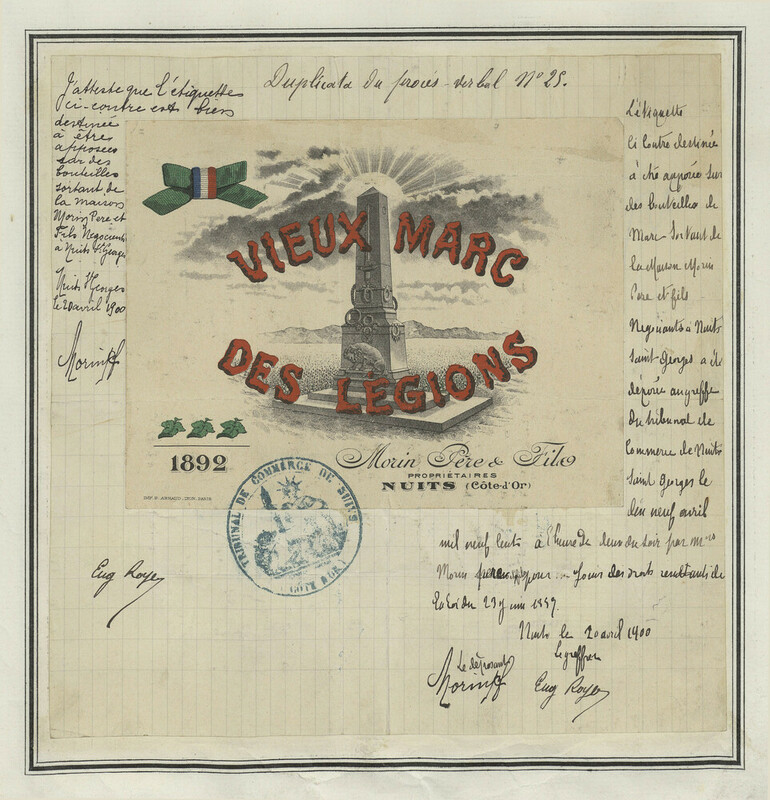 Duplicata du procès-verbal N° 25.
J'atteste que l'étiquette
ci-contre est bien
destinée
à être
apposée
sur des
bouteilles
sortant de
la maison
Morin Père et
Fils Negociants
à Nuits St Georges
Nuits St Georges
le 20 avril 1900
Morin P f
VIEUX MARC
DES LÉGIONS
1892
Morin Père & Fils
PROPRIÉTAIRES
NUITS (Côte-d'Or)
TRIBUNAL DE COMMERCE DE NUITS
(COTE D'OR)
L'étiquette
ci contre destinée
à être apposée sur
des bouteilles de
Marc sortant de
la Maison Morin
Père et fils
Negociants à Nuits
Saint-Georges a été
déposée au greffe
du tribunal de
Commerce de Nuits
Saint Georges le
dix neuf avril
mil neuf cents à l'heure de deux du soir par Mrs
Morin pour jouir des droits resultants de
la Loi du 23 juin 1857.
Nuits le 20 avril 1900
Le déposant
le greffier
Morin P f
Eug Royer
Eug Royer